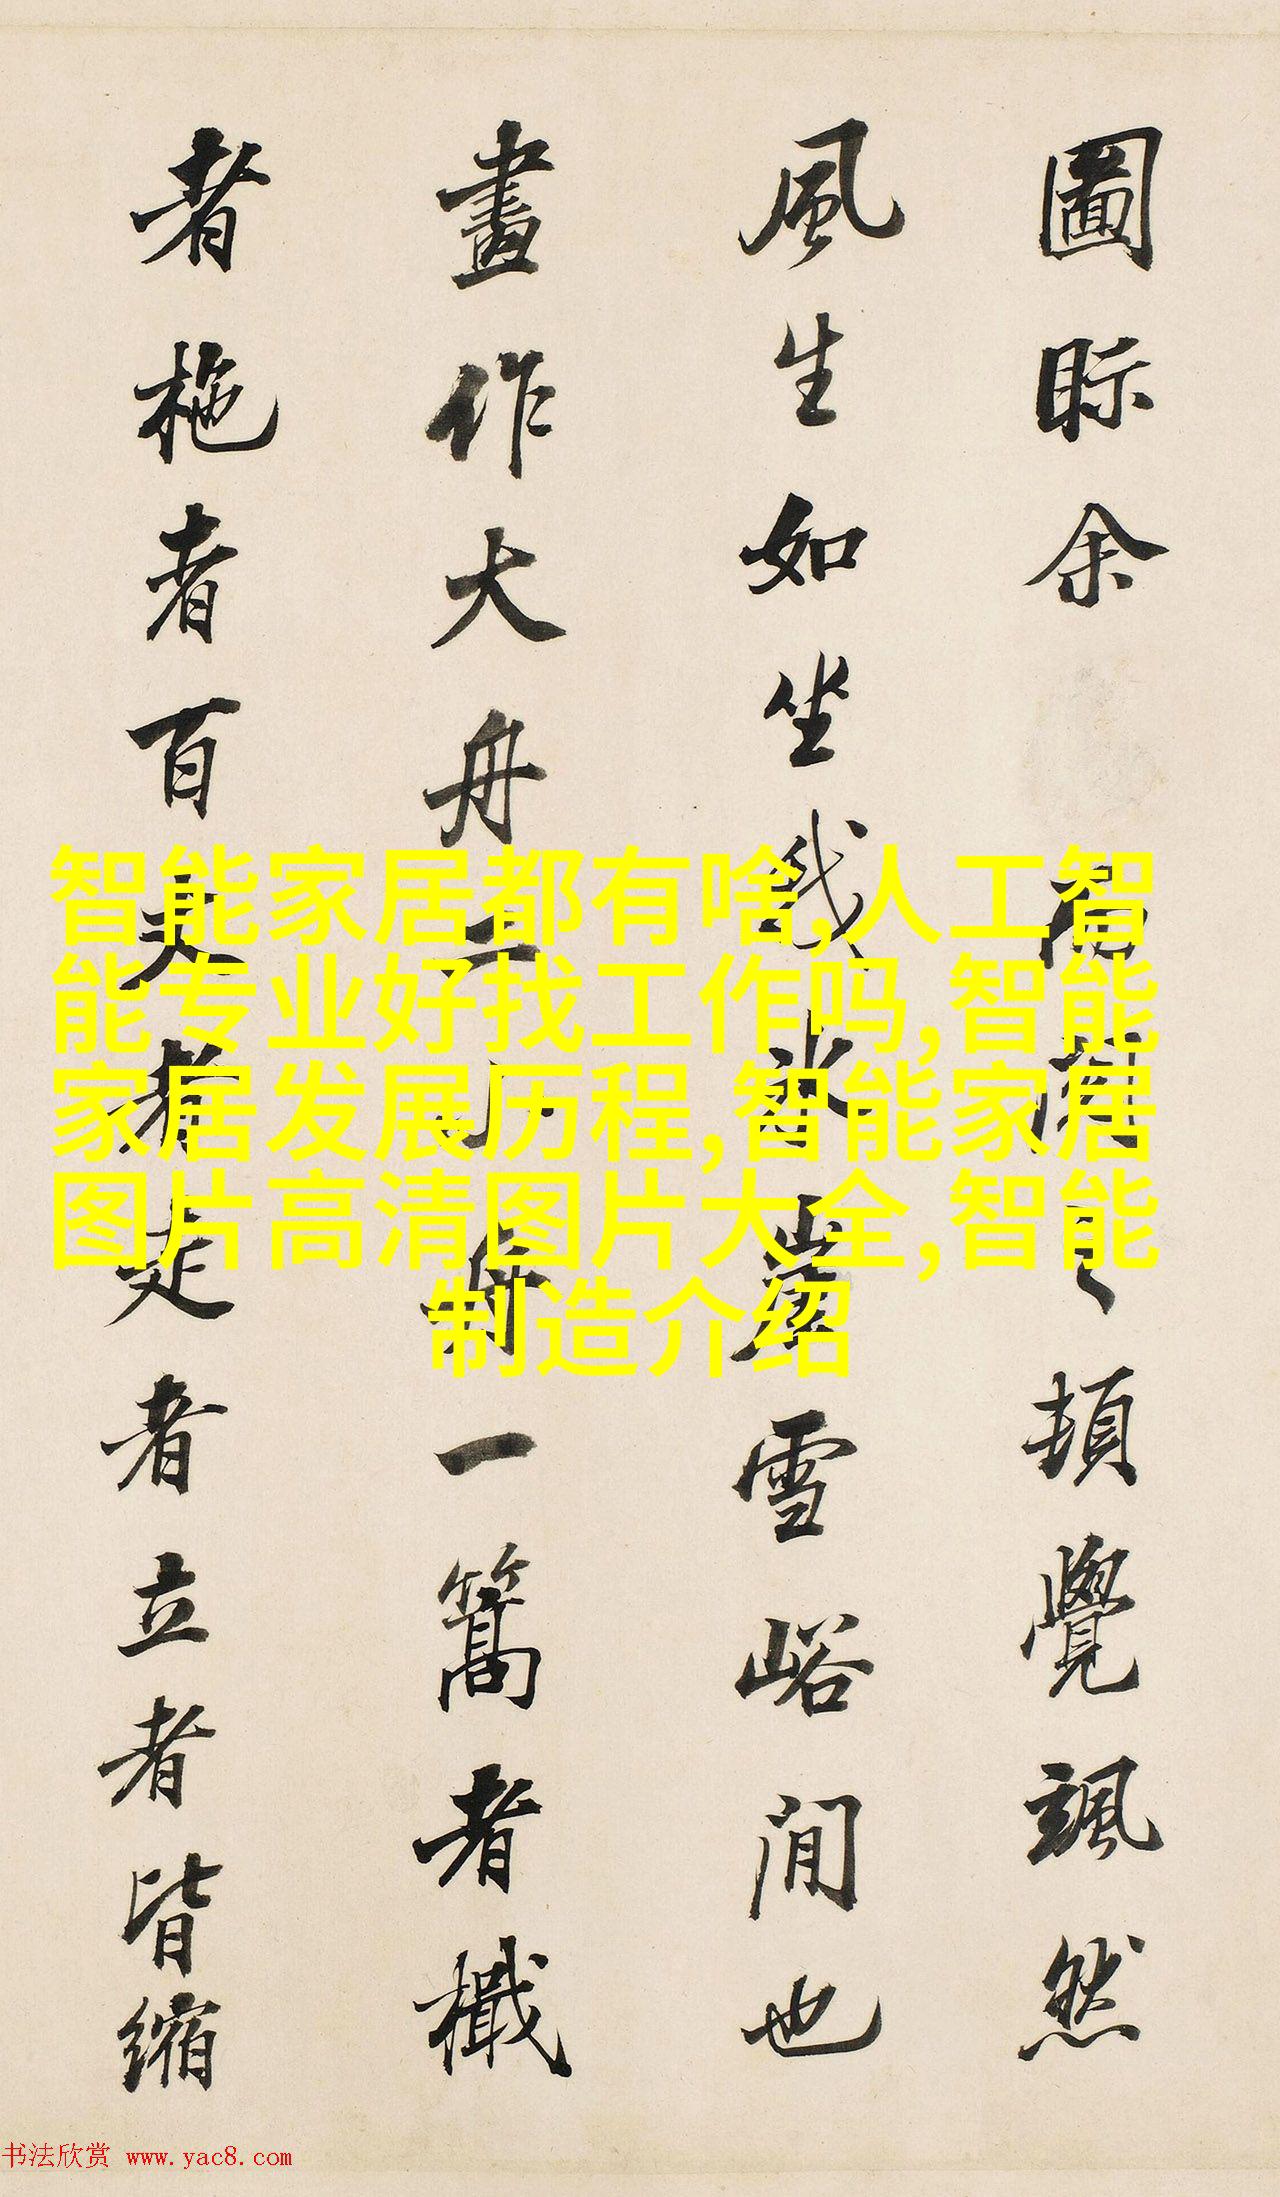 圖眎余頓覺颯然
風生如坐我冰雪峪間也
畫作大舟二小舟一篙者檝
者柂者百丈者走者立者皆縮
智能家居都有啥,人工智
能专业好找工作吗,智能
家居发展历程,智能家居
图片高清图片大全,智能
制造介绍
书法欣赏 www.yac8.com